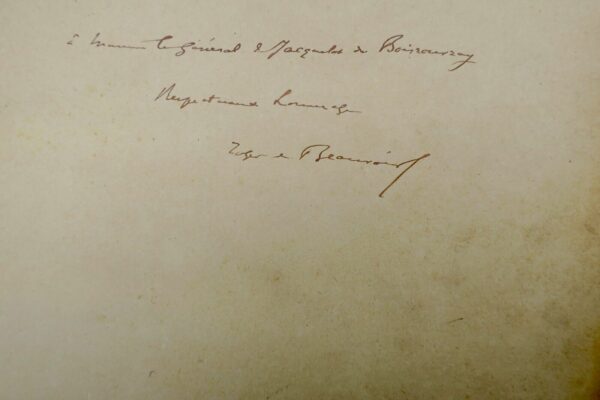 à Monsieur le Général de Jacquelot de Boisrouvray
Respectueux hommage
Roger de Beauvoir